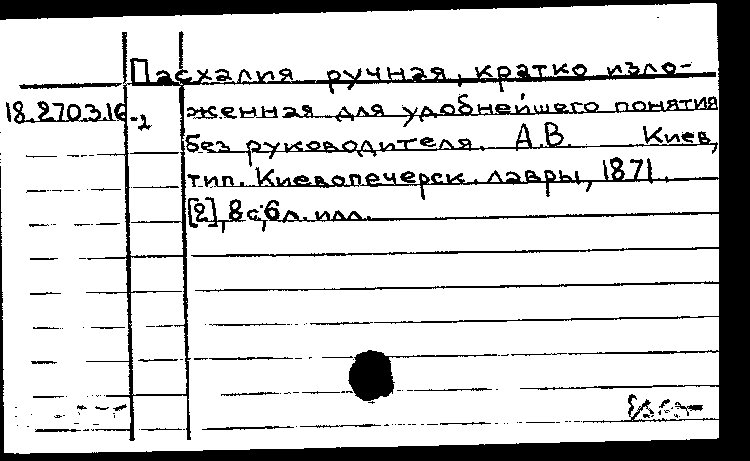 Пасхалия ручная, кратко изло-
18.270.3.16-2 женная для удобнейшего понятия
без руководителя. А.В. Киев,
тип. Киевопечерск. лавры, 1871.
[2], 8 с; 6 л. илл.